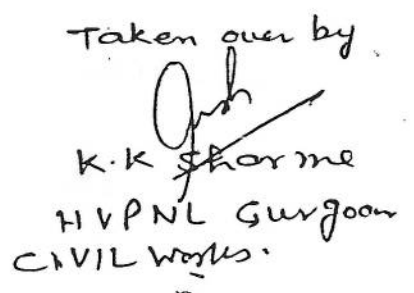 Taken over by
K.K Sharma
HVPNL Gurgaon
CIVIL Works.